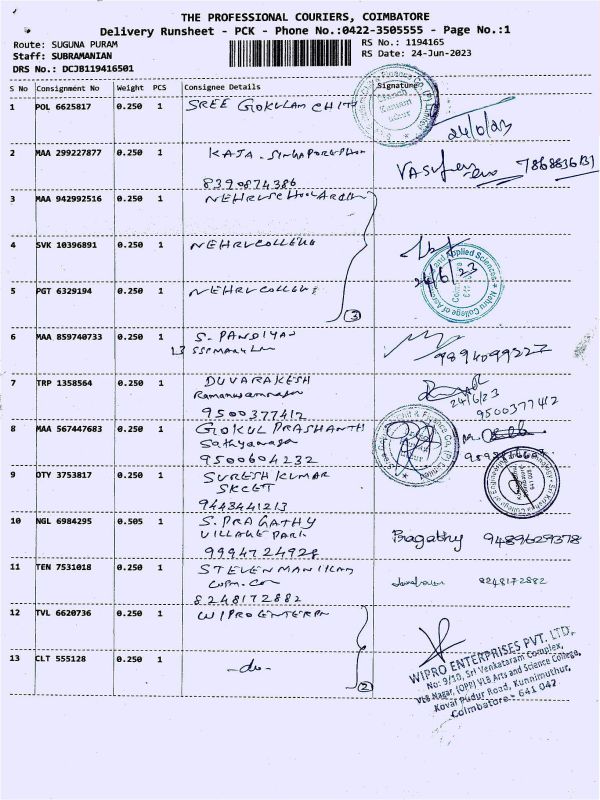 THE PROFESSIONAL COURIERS, COIMBATORE
Delivery Runsheet - PCK - Phone No.:0422-3505555 - Page No.:1
Route: SUGUNA PURAM RS No.: 1194165
Staff: SUBRAMANIAN RS Date: 24-Jun-2023
DRS No.: DCJB119416501
S No Consignment No Weight PCS Consignee Details Signature
1 POL 6625817 0.250 1 SREE GOKULAM CHIT
24/6/23
2 MAA 299227877 0.250 1 KAJA - SINGAPORE
7868836131
8390874386
3 MAA 942992516 0.250 1 NEHRU SCHOOL
4 SVK 10396891 0.250 1 NEHRU COLLEGE
24/6/23
5 PGT 6329194 0.250 1 NEHRU COLLEGE
3
6 MAA 859740733 0.250 1 S. PANDIYAN
9894099227
7 TRP 1358564 0.250 1 DUVARAKESH
24/6/23
9500377412 9500377412
8 MAA 567447683 0.250 1 GOKUL PRASHANTH
Sathyanagar
9500604232
9 OTY 3753817 0.250 1 SURESH KUMAR
SKCET
9443441213
10 NGL 6984295 0.505 1 S. PRAGATHY
VILLAGE PARK Pragathy 9489629378
9994724928
11 TEN 7531018 0.250 1 STEVEN MANI
8248172882
8248172882
12 TVL 6620736 0.250 1 WIPRO ENTERPR
13 CLT 555128 0.250 1 -do-
2
WIPRO ENTERPRISES PVT. LTD.
No: 9/10, Sri Venkataram Complex,
VLB Nagar, (OPP) VLB Arts and Science College,
Kovai Pudur Road, Kunnimuthur,
Coimbatore - 641 042